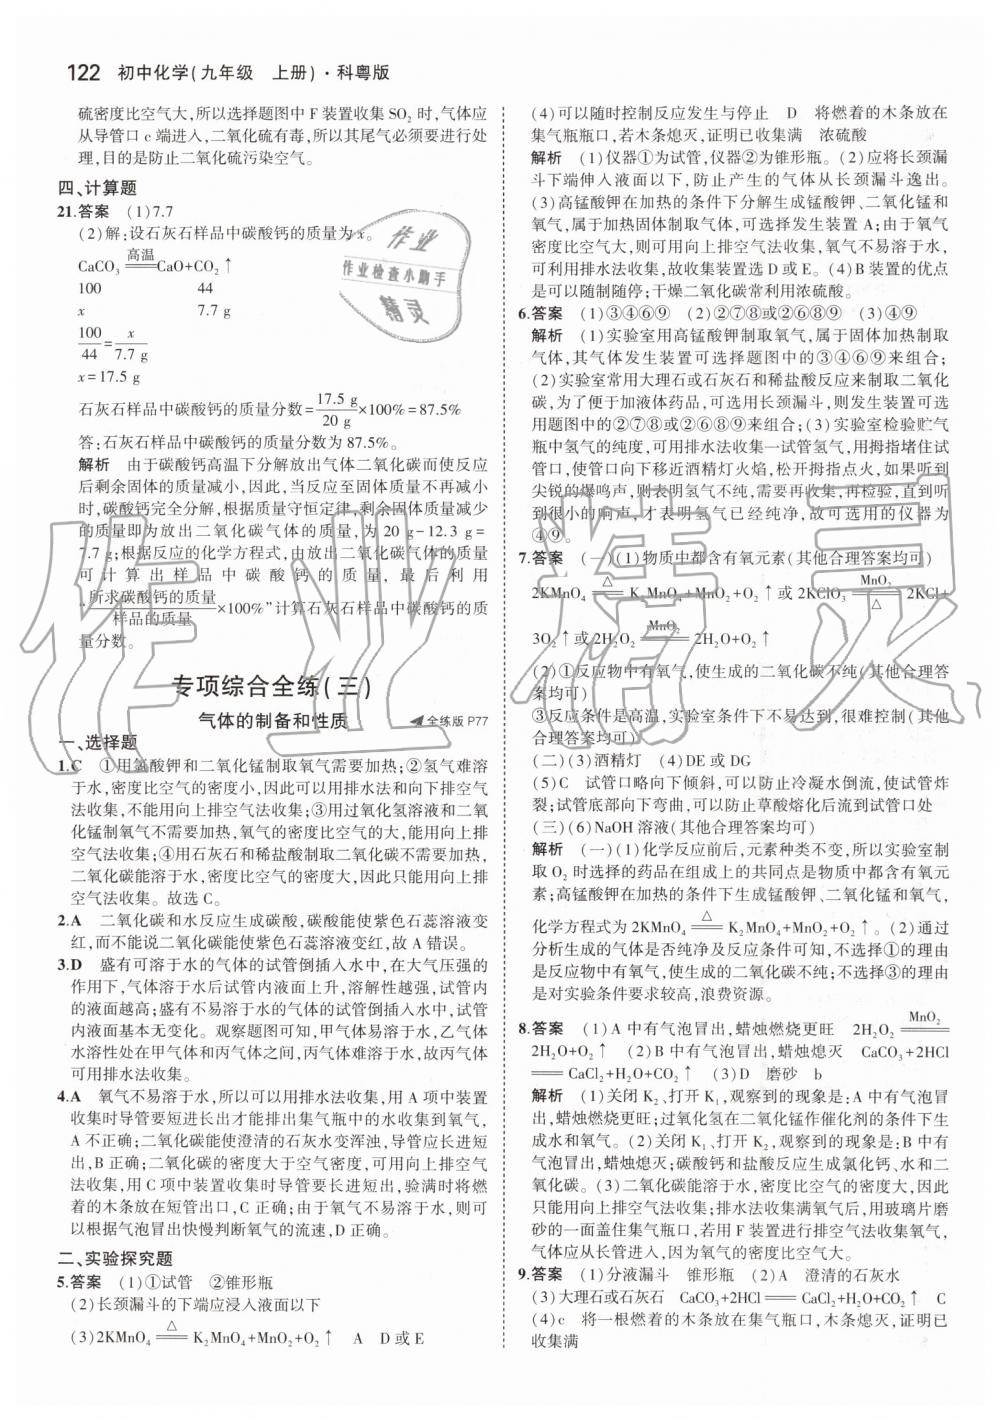 122 初中化学(九年级 上册)·科粤版
硫密度比空气大,所以选择题图中 F 装置收集 SO₂ 时,气体应
从导管口 c 端进入,二氧化硫有毒,所以其尾气必须要进行处
理,目的是防止二氧化硫污染空气。
四、计算题
21.答案 (1)7.7
(2)解:设石灰石样品中碳酸钙的质量为 x。
CaCO₃ =高温= CaO+CO₂↑
100 44
x 7.7 g
100/44 = x/7.7 g
x=17.5 g
石灰石样品中碳酸钙的质量分数=17.5 g/20 g×100%=87.5%
答:石灰石样品中碳酸钙的质量分数为 87.5%。
解析 由于碳酸钙高温下分解放出气体二氧化碳而使反应
后剩余固体的质量减小,因此,当反应至固体质量不再减小
时,碳酸钙完全分解,根据质量守恒定律,剩余固体质量减少
的质量即为放出二氧化碳气体的质量,为 20 g-12.3 g=
7.7 g;根据反应的化学方程式,由放出二氧化碳气体的质量
可计算出样品中碳酸钙的质量,最后利用
“所求碳酸钙的质量/样品的质量×100%”计算石灰石样品中碳酸钙的质
量分数。
专项综合全练(三)
气体的制备和性质 全练版 P77
一、选择题
1.C ①用氯酸钾和二氧化锰制取氧气需要加热;②氢气难溶
于水,密度比空气的密度小,因此可以用排水法和向下排空气
法收集,不能用向上排空气法收集;③用过氧化氢溶液和二氧
化锰制氧气不需要加热,氧气的密度比空气的大,能用向上排
空气法收集;④用石灰石和稀盐酸制取二氧化碳不需要加热,
二氧化碳能溶于水,密度比空气的密度大,因此只能用向上排
空气法收集。故选 C。
2.A 二氧化碳和水反应生成碳酸,碳酸能使紫色石蕊溶液变
红,而不能说二氧化碳能使紫色石蕊溶液变红,故 A 错误。
3.D 盛有可溶于水的气体的试管倒插入水中,在大气压强的
作用下,气体溶于水后试管内液面上升,溶解性越强,试管内
的液面越高;盛有不易溶于水的气体的试管倒插入水中,试管
内液面基本无变化。观察题图可知,甲气体易溶于水,乙气体
水溶性处在甲气体和丙气体之间,丙气体难溶于水,故丙气体
可用排水法收集。
4.A 氧气不易溶于水,所以可以用排水法收集,用 A 项中装置
收集时导管要短进长出才能排出集气瓶中的水收集到氧气,
A 不正确;二氧化碳能使澄清的石灰水变浑浊,导管应长进短
出,B 正确;二氧化碳的密度大于空气密度,可用向上排空气
法收集,用 C 项中装置收集时导管要长进短出,验满时将燃
着的木条放在短管出口,C 正确;由于氧气不易溶于水,则可
以根据气泡冒出快慢判断氧气的流速,D 正确。
二、实验探究题
5.答案 (1)①试管 ②锥形瓶
(2)长颈漏斗的下端应浸入液面以下
(3)2KMnO₄ =△= K₂MnO₄+MnO₂+O₂↑ A D 或 E
(4)可以随时控制反应发生与停止 D 将燃着的木条放在
集气瓶瓶口,若木条熄灭,证明已收集满 浓硫酸
解析 (1)仪器①为试管,仪器②为锥形瓶。(2)应将长颈漏
斗下端伸入液面以下,防止产生的气体从长颈漏斗逸出。
(3)高锰酸钾在加热的条件下分解生成锰酸钾、二氧化锰和
氧气,属于加热固体制取气体,可选择发生装置 A;由于氧气
密度比空气大,则可用向上排空气法收集,氧气不易溶于水,
可利用排水法收集,故收集装置选 D 或 E。(4)B 装置的优点
是可以随制随停;干燥二氧化碳常利用浓硫酸。
6.答案 (1)①③④⑥⑨ (2)②⑦⑧或②⑥⑧⑨ (3)④⑨
解析 (1)实验室用高锰酸钾制取氧气,属于固体加热制取
气体,其气体发生装置可选择题图中的③④⑥⑨来组合;
(2)实验室常用大理石或石灰石和稀盐酸反应来制取二氧化
碳,为了便于加液体药品,可选用长颈漏斗,则发生装置可选
用题图中的②⑦⑧或②⑥⑧⑨来组合;(3)实验室检验贮气
瓶中氢气的纯度,可用排水法收集一试管氢气,用拇指堵住试
管口,使管口向下移近酒精灯火焰,松开拇指点火,如果听到
尖锐的爆鸣声,则表明氢气不纯,需要再收集,再检验,直到听
到很小的响声,才表明氢气已经纯净,故可选用的仪器为
④⑨。
7.答案 (一)(1)物质中都含有氧元素(其他合理答案均可)
2KMnO₄ =△= K₂MnO₄+MnO₂+O₂↑或 2KClO₃ =MnO₂/△= 2KCl+
3O₂↑或 2H₂O₂ =MnO₂= 2H₂O+O₂↑
(2)①反应物中有氧气,使生成的二氧化碳不纯(其他合理答
案均可)
③反应条件是高温,实验室条件下不易达到,很难控制(其他
合理答案均可)
(二)(3)酒精灯 (4)DE 或 DG
(5)C 试管口略向下倾斜,可以防止冷凝水倒流,使试管炸
裂;试管底部向下弯曲,可以防止草酸熔化后流到试管口处
(三)(6)NaOH 溶液(其他合理答案均可)
解析 (一)(1)化学反应前后,元素种类不变,所以实验室制
取 O₂ 时选择的药品在组成上的共同点是物质中都含有氧元
素;高锰酸钾在加热的条件下生成锰酸钾、二氧化锰和氧气,
化学方程式为 2KMnO₄ =△= K₂MnO₄+MnO₂+O₂↑。(2)通过
分析生成的气体是否纯净及反应条件可知,不选择①的理由
是反应物中有氧气,使生成的二氧化碳不纯;不选择③的理由
是对实验条件要求较高,浪费资源。
8.答案 (1)A 中有气泡冒出,蜡烛燃烧更旺 2H₂O₂ =MnO₂=
2H₂O+O₂↑ (2)B 中有气泡冒出,蜡烛熄灭 CaCO₃+2HCl
═ CaCl₂+H₂O+CO₂↑ (3)D 磨砂 b
解析 (1)关闭 K₂、打开 K₁,观察到的现象是:A 中有气泡冒
出,蜡烛燃烧更旺;过氧化氢在二氧化锰作催化剂的条件下生
成水和氧气。(2)关闭 K₁、打开 K₂,观察到的现象是:B 中有
气泡冒出,蜡烛熄灭;碳酸钙和盐酸反应生成氯化钙、水和二
氧化碳。(3)二氧化碳能溶于水,密度比空气的密度大,因此
只能用向上排空气法收集;排水法收集满氧气后,用玻璃片磨
砂的一面盖住集气瓶口,若用 F 装置进行排空气法收集氧气,
气体应从长管进入,因为氧气的密度比空气大。
9.答案 (1)分液漏斗 锥形瓶 (2)A 澄清的石灰水
(3)大理石或石灰石 CaCO₃+2HCl═CaCl₂+H₂O+CO₂↑ C
(4)c 将一根燃着的木条放在集气瓶口,木条熄灭,证明已
收集满
作业
作业检查小助手
精灵
作业精灵